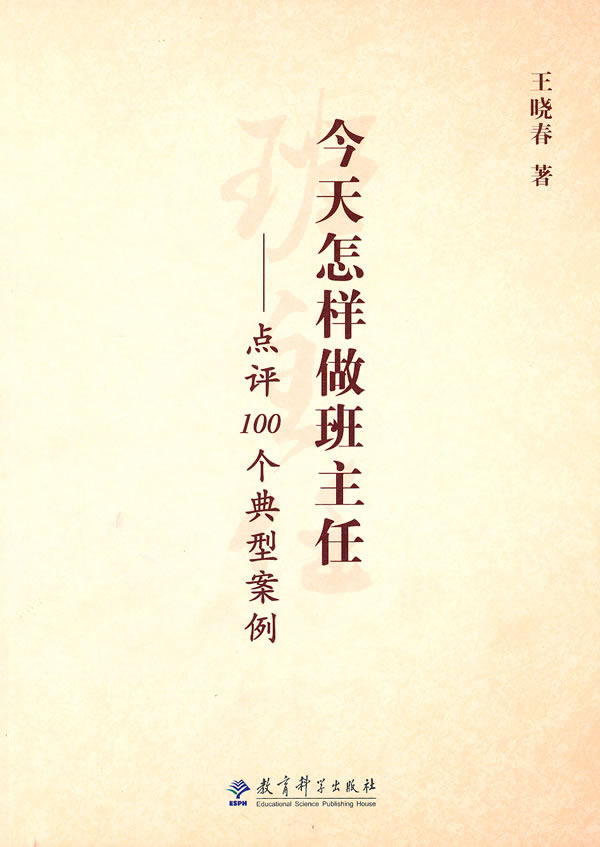 王晓春 著
今天怎样做班主任
——点评100个典型案例
班主任
教育科学出版社
ESPH
Educational Science Publishing House